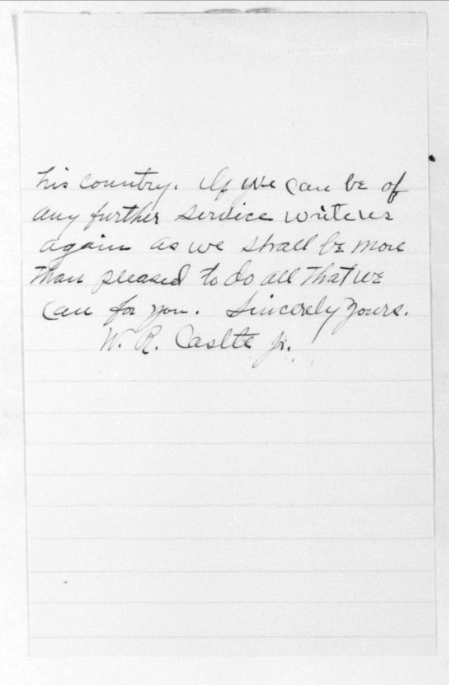 his country. If we can be of
any further service write us
again as we shall be more
than pleased to do all that we
can for you. Sincerely yours.
W. R. Caslte Jr.